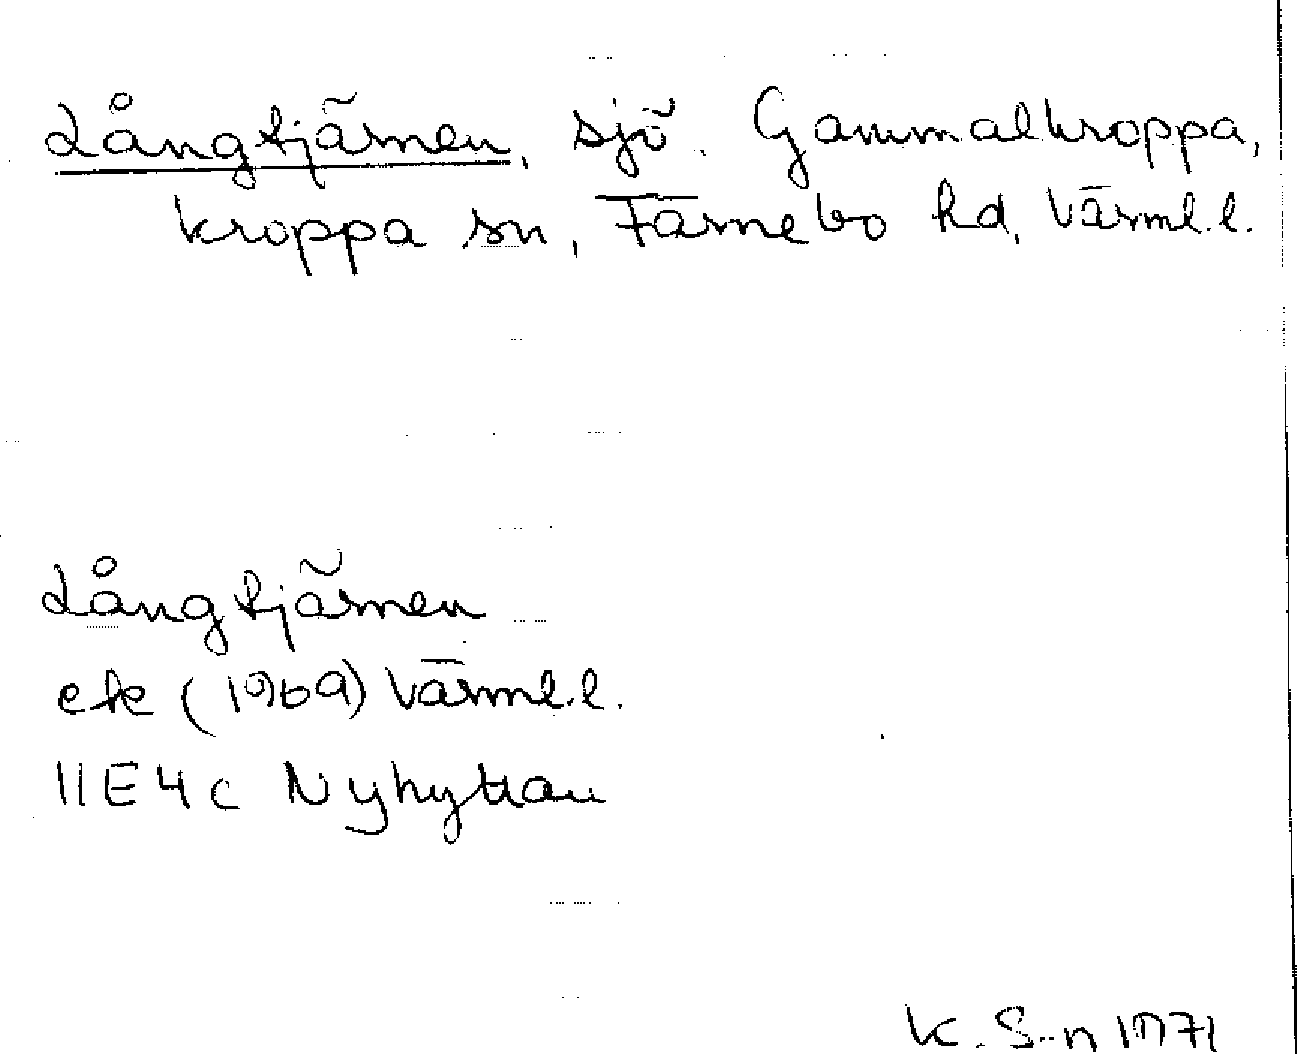 Långtjärnen, sjö. Gammalkroppa,
Kroppa sn, Färnebo hd, Värml. l.
Långtjärnen
ek (1969) Värml. l.
11E4c Nyhyttan
K. S-n 1971